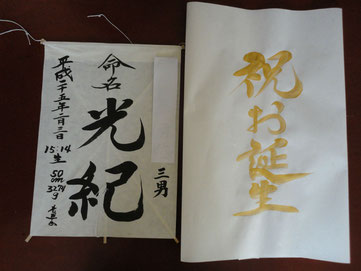 祝お誕生
三男
命名
光紀
平成二十五年二月三日
15:14
生
50
cm
3274
g